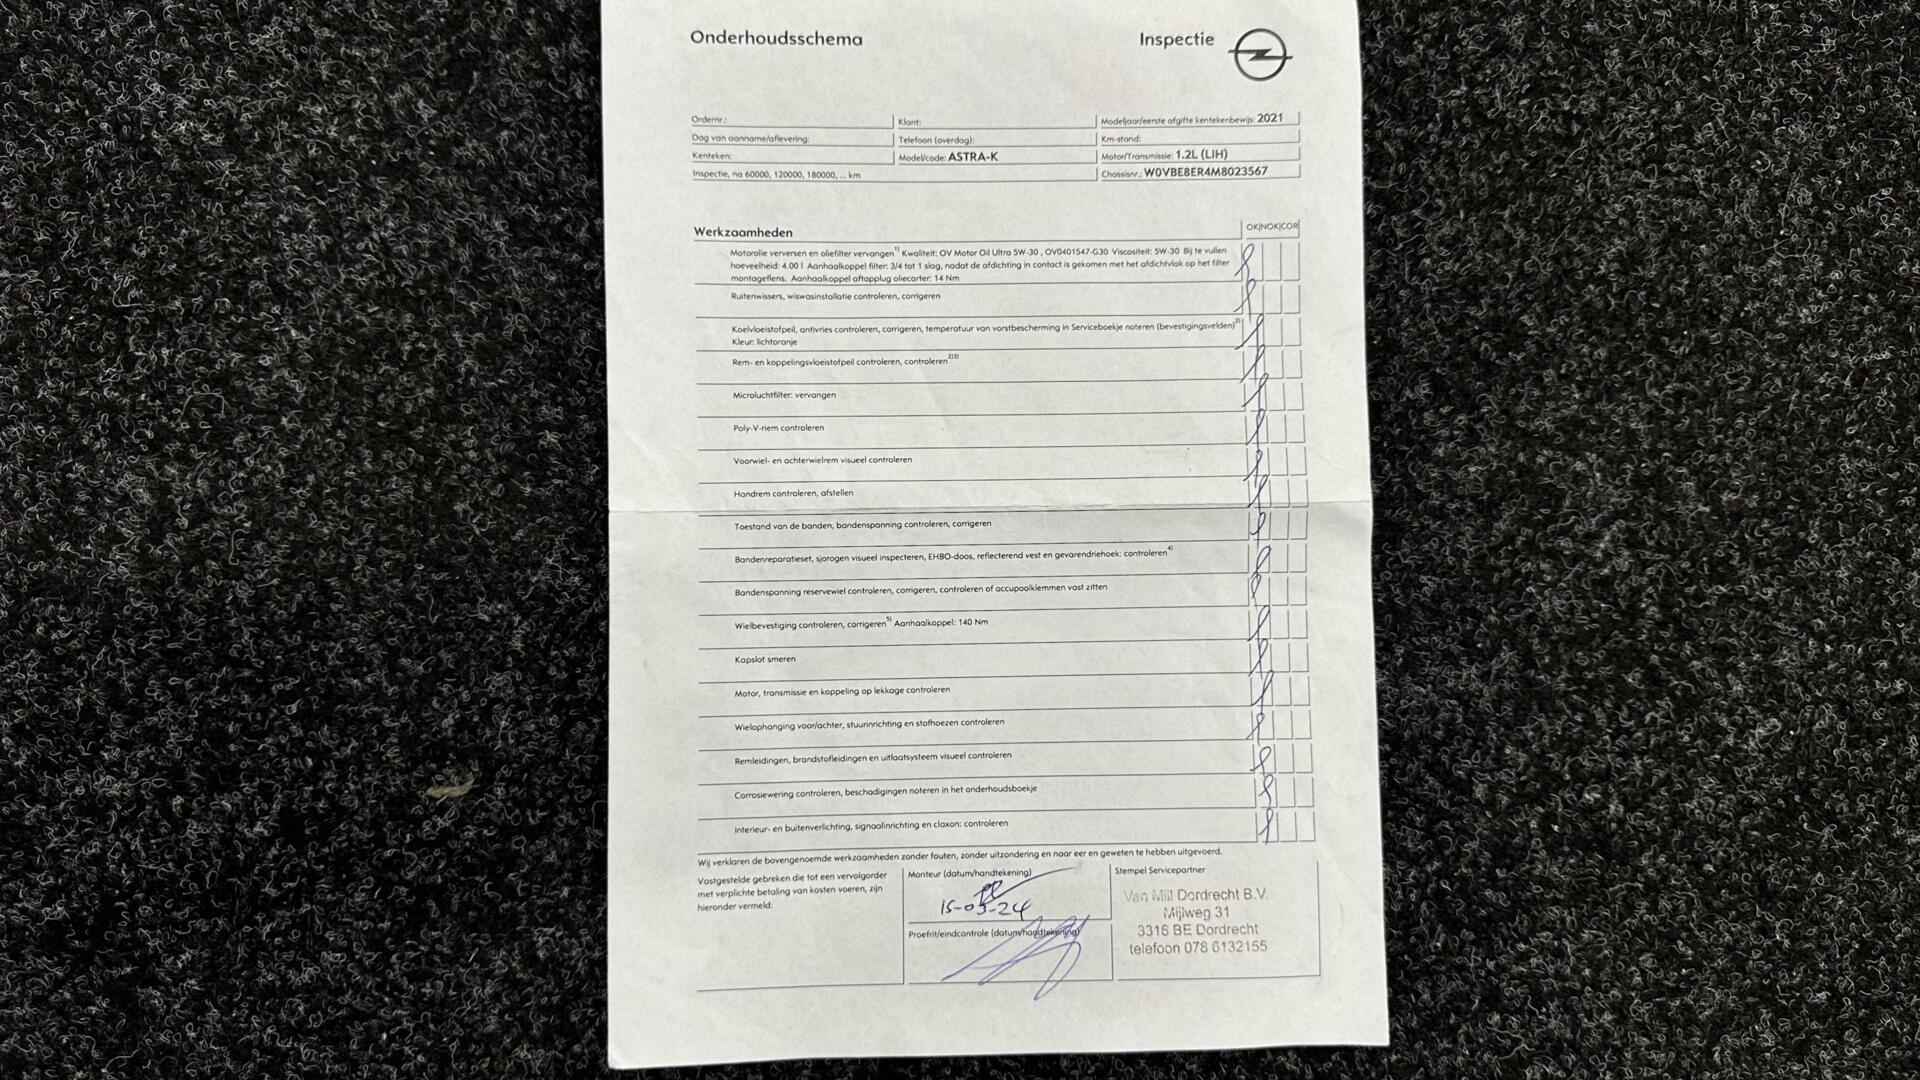 Onderhoudsschema
Inspectie
Ordernr.:
Klant:
Modeljaar/eerste afgifte kentekenbewijs: 2021
Dag van aanname/aflevering:
Telefoon (overdag):
Km-stand:
Kenteken:
Model/code: ASTRA-K
Motor/Transmissie: 1.2L (LIH)
Inspectie, na 60000, 120000, 180000, ... km
Chassisnr.: W0VBE8ER4M8023567
Werkzaamheden
OK|NOK|COR
Motorolie verversen en oliefilter vervangen 1) Kwaliteit: OV Motor Oil Ultra 5W-30 , OV0401547-G30 Viscositeit: 5W-30 Bij te vullen
hoeveelheid: 4.00 l Aanhaalkoppel filter: 3/4 tot 1 slag, nadat de afdichting in contact is gekomen met het afdichtvlak op het filter
montageflens. Aanhaalkoppel aftapplug oliecarter: 14 Nm
Ruitenwissers, wiswasinstallatie controleren, corrigeren
Koelvloeistofpeil, antivries controleren, corrigeren, temperatuur van vorstbescherming in Serviceboekje noteren (bevestigingsvelden)
Kleur: lichtoranje
Rem- en koppelingsvloeistofpeil controleren, controleren
Microluchtfilter: vervangen
Poly-V-riem controleren
Voorwiel- en achterwielrem visueel controleren
Handrem controleren, afstellen
Toestand van de banden, bandenspanning controleren, corrigeren
Bandenreparatieset, sjorogen visueel inspecteren, EHBO-doos, reflecterend vest en gevarendriehoek: controleren 4)
Bandenspanning reservewiel controleren, corrigeren, controleren of accupoolklemmen vast zitten
Wielbevestiging controleren, corrigeren 5) Aanhaalkoppel: 140 Nm
Kapslot smeren
Motor, transmissie en koppeling op lekkage controleren
Wielophanging voor/achter, stuurinrichting en stofhoezen controleren
Remleidingen, brandstofleidingen en uitlaatsysteem visueel controleren
Corrosiewering controleren, beschadigingen noteren in het onderhoudsboekje
Interieur- en buitenverlichting, signaalinrichting en claxon: controleren
Wij verklaren de bovengenoemde werkzaamheden zonder fouten, zonder uitzondering en naar eer en geweten te hebben uitgevoerd.
Vastgestelde gebreken die tot een vervolgorder
met verplichte betaling van kosten voeren, zijn
hieronder vermeld:
Monteur (datum/handtekening)
15-03-24
Proefrit/eindcontrole (datum/handtekening)
Stempel Servicepartner
Van Mill Dordrecht B.V.
Mijlweg 31
3316 BE Dordrecht
telefoon 078 6132155